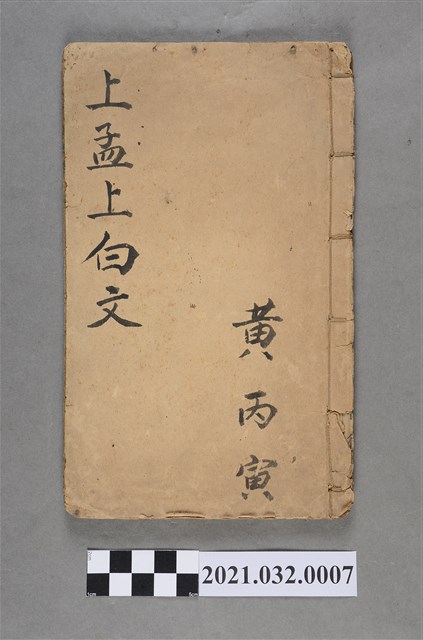 上孟上白文
黃丙寅
2021.032.0007
1cm 5cm